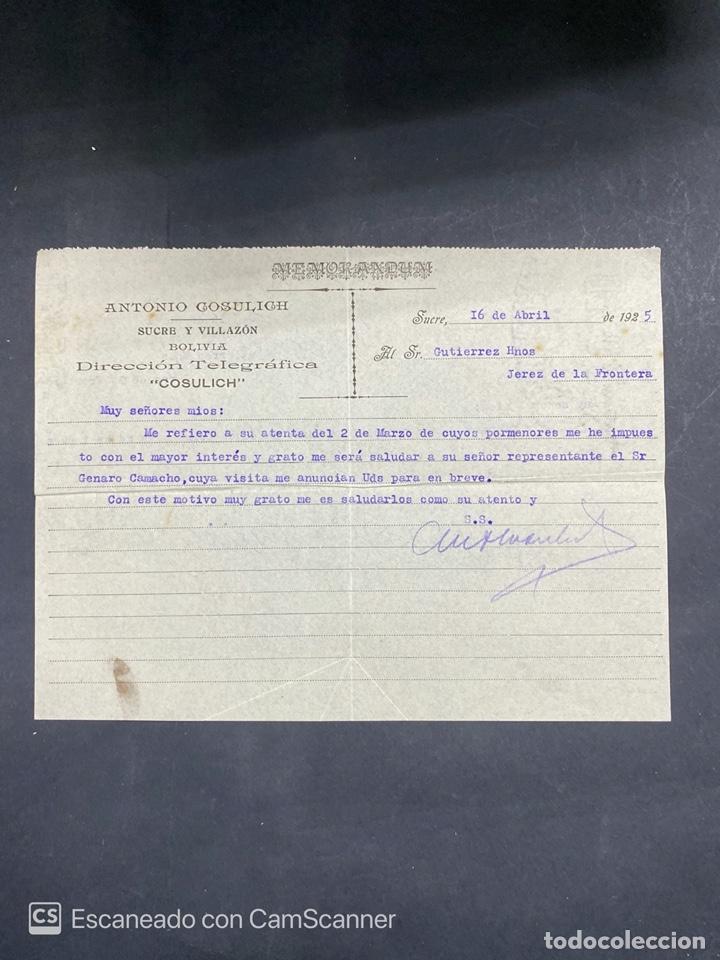 MEMORANDUM
ANTONIO COSULICH
SUCRE Y VILLAZÓN
BOLIVIA
Dirección Telegráfica
"COSULICH"
Sucre, 16 de Abril de 1925
Al Sr. Gutierrez Hnos
Jerez de la Frontera
Muy señores mios:
Me refiero a su atenta del 2 de Marzo de cuyos pormenores me he impues
to con el mayor interés y grato me será saludar a su señor representante el Sr
Genaro Camacho,cuya visita me anuncian Uds para en breve.
Con este motivo muy grato me es saludarlos como su atento y
S.S.
CS Escaneado con CamScanner
todocoleccion